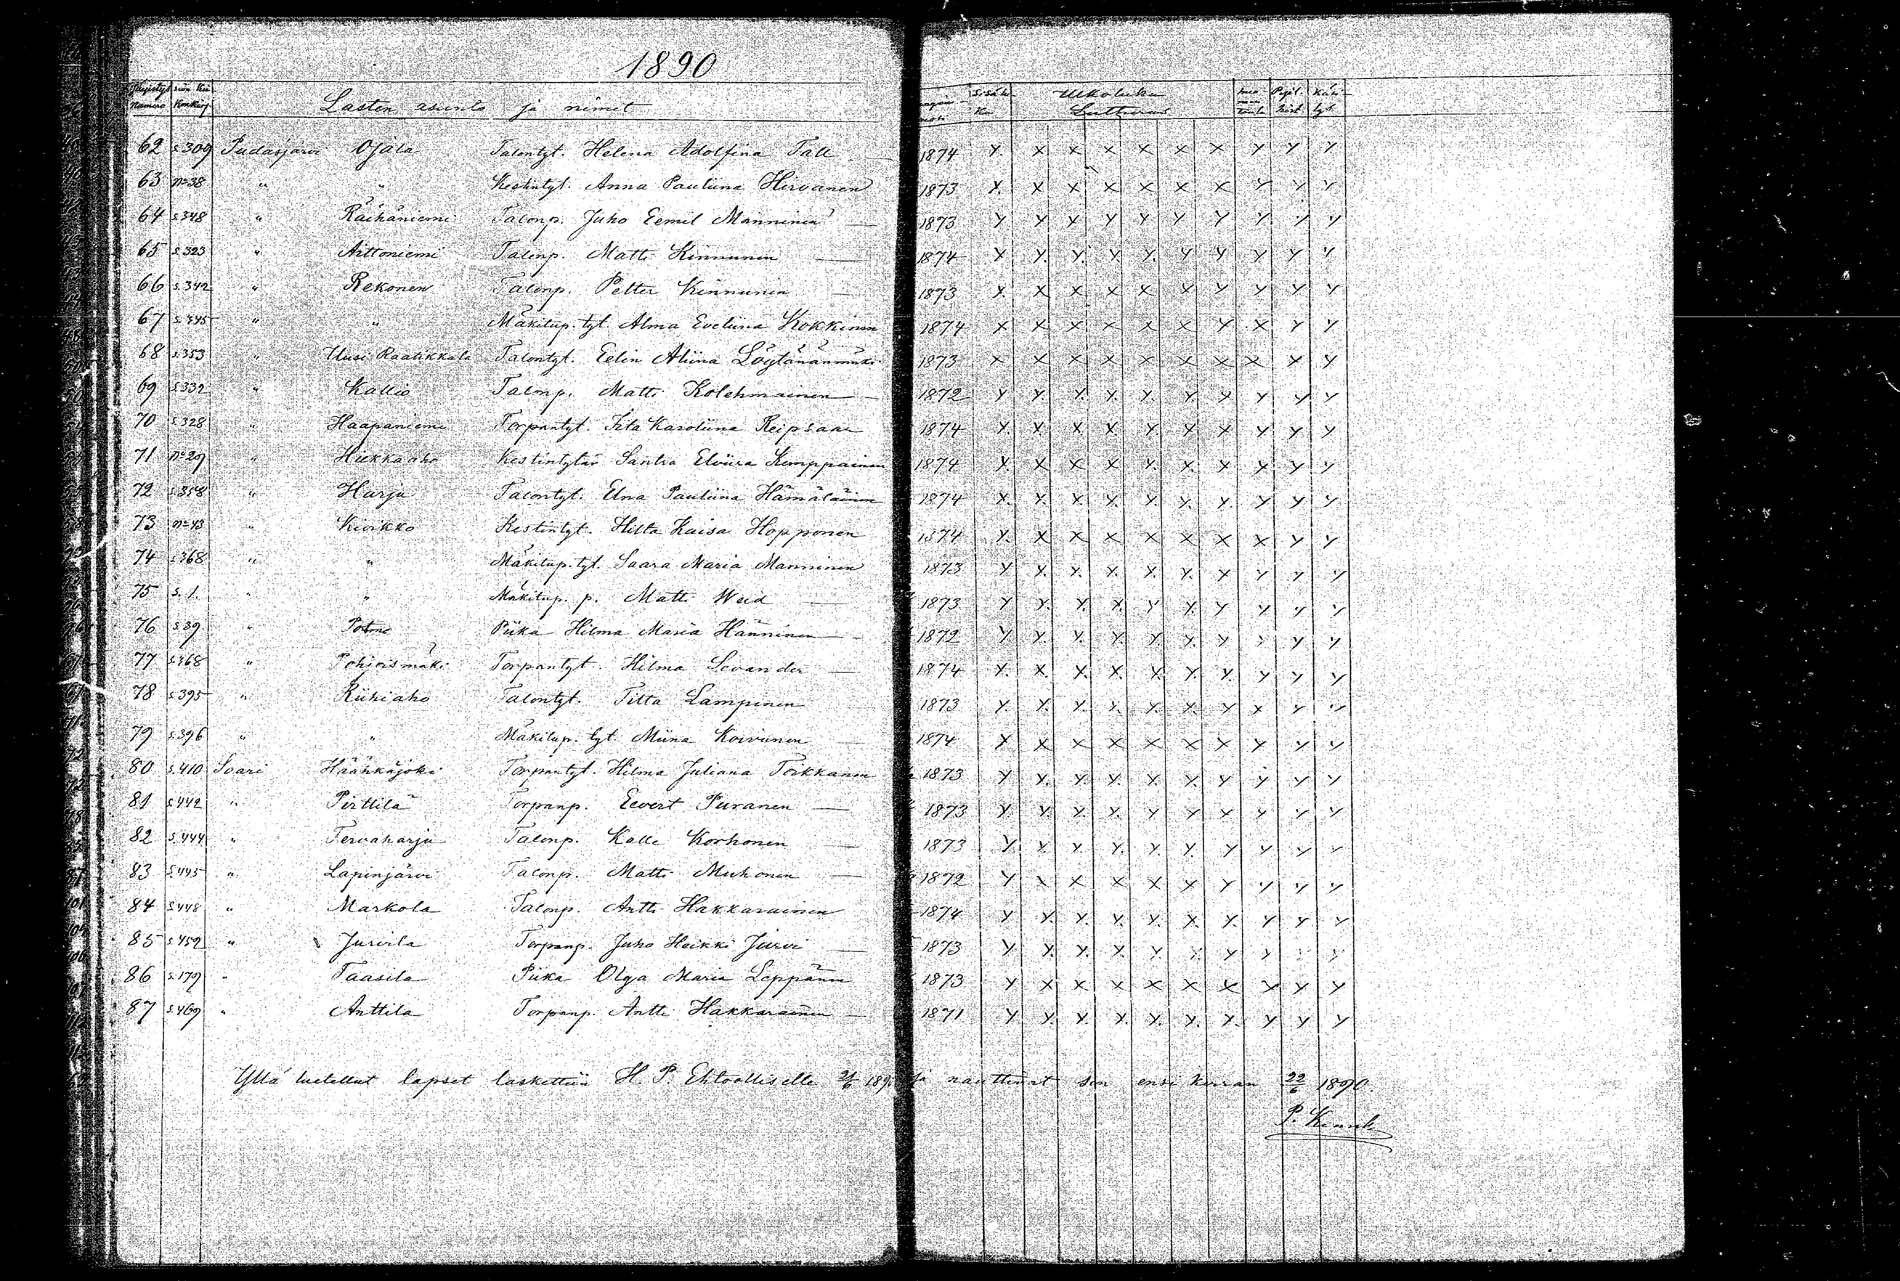 1890
Lasten asunto ja nimet Sisälu- Ulkoluku
Numero Lutterus
62 s.309 Pudasjärvi Ojala Talontyt. Helena Adolfina Tall 1874 y. x x x x x x y y y
63 n=38 " " Kestintyt. Anna Pauliina Hirvonen 1873 x. x x x x x x y y y
64 s.348 " Räihäniemi Talonp. Juho Eemil Manninen 1873 y y y y y y y y y y
65 s.323 " Aittoniemi Talonp. Matti Kinnunen 1874 x y y. y y. y y y y y
66 s.342 " Rekonen Talonp. Petter Kinnunen 1873 x. x x x x x y y y y
67 s.345 " " Mäkitup. tyt. Alma Eveliina Kokkinen 1874 x x x x x x y x y y
68 s.353 " Uusi Raatikkala Talontyt. Eelin Aliina Löytänänmäki 1873 x x x x x x x x x y
69 s.332 " Kallio Talonp. Matti Kolehmainen 1872 y y y. y. y. y y y y y
70 s.328 " Haapaniemi Torpantyt. Iita Karoliina Reipsaar 1874 y. y. x y. y y x y y y
71 n=29 " Hiekkaaho Kestintytär Santra Elviira Kemppainen 1874 y. x x x y. x. y x y y
72 s.358 " Harju Talontyt. Elna Pauliina Hämäläinen 1874 x. x. y. y. y. y. y y y y
73 n=43 " Kuikko Kestintyt. Hilta Kaisa Hopponen 1874 y. x x x x x x x y y
74 s.368 " " Mäkitup. tyt. Saara Maria Manninen 1873 y y. y. y. y. y. y y y y
75 s. 1. " " Mäkitup. p. Matti Weid 1873 y y. y. x. y y. y y y y
76 s.39 " Piika Hilma Maria Hänninen 1872 y. y. y. y. y. y. y y y y
77 s.368 " Pohjoismäki Torpantyt. Hilma Sevander 1874 x. x. x x x x y. y y y
78 s.395 " Riihiaho Talontyt. Tilta Lampinen 1873 y. y. y. y. y. y. y x y y
79 s.396 " " Mäkitup. tyt. Miina Koivunen 1874 x x x x x x x y y y
80 s.410 Soari Häähkäjoki Torpantyt. Hilma Juliana Toikkanen 1873 y y. y. y. y. y. y y y y
81 s.442 " Pirttilä Torpanp. Eevert Puranen 1873 y. y. y. y. y y x y y y
82 s.444 " Tervaharju Talonp. Kalle Korhonen 1873 y. y. y y. y. y. y y y y
83 s.445 " Lapinjärvi Talonp. Matti Muhonen 1872 y x x x x x y y y y
84 s.448 " Markola Talonp. Antti Hakkarainen 1874 y y. y. y. y. y. y. y y y
85 s.452 " Jurvila Torpanp. Juho Heikki Jurvi 1873 y y. y. y. y y. y y y y
86 s.179 " Taasila Piika Olga Maria Leppänen 1873 y x x x x x x x y y
87 s.469 " Anttila Torpanp. Antti Hakkarainen 1871 y y. y. y. y. y. y. y y y
Yllä luetellut lapset laskettiin H. P. Ehtoolliselle 21/6 1890 ja nauttivat sen ensi kerran 22/6 1890.